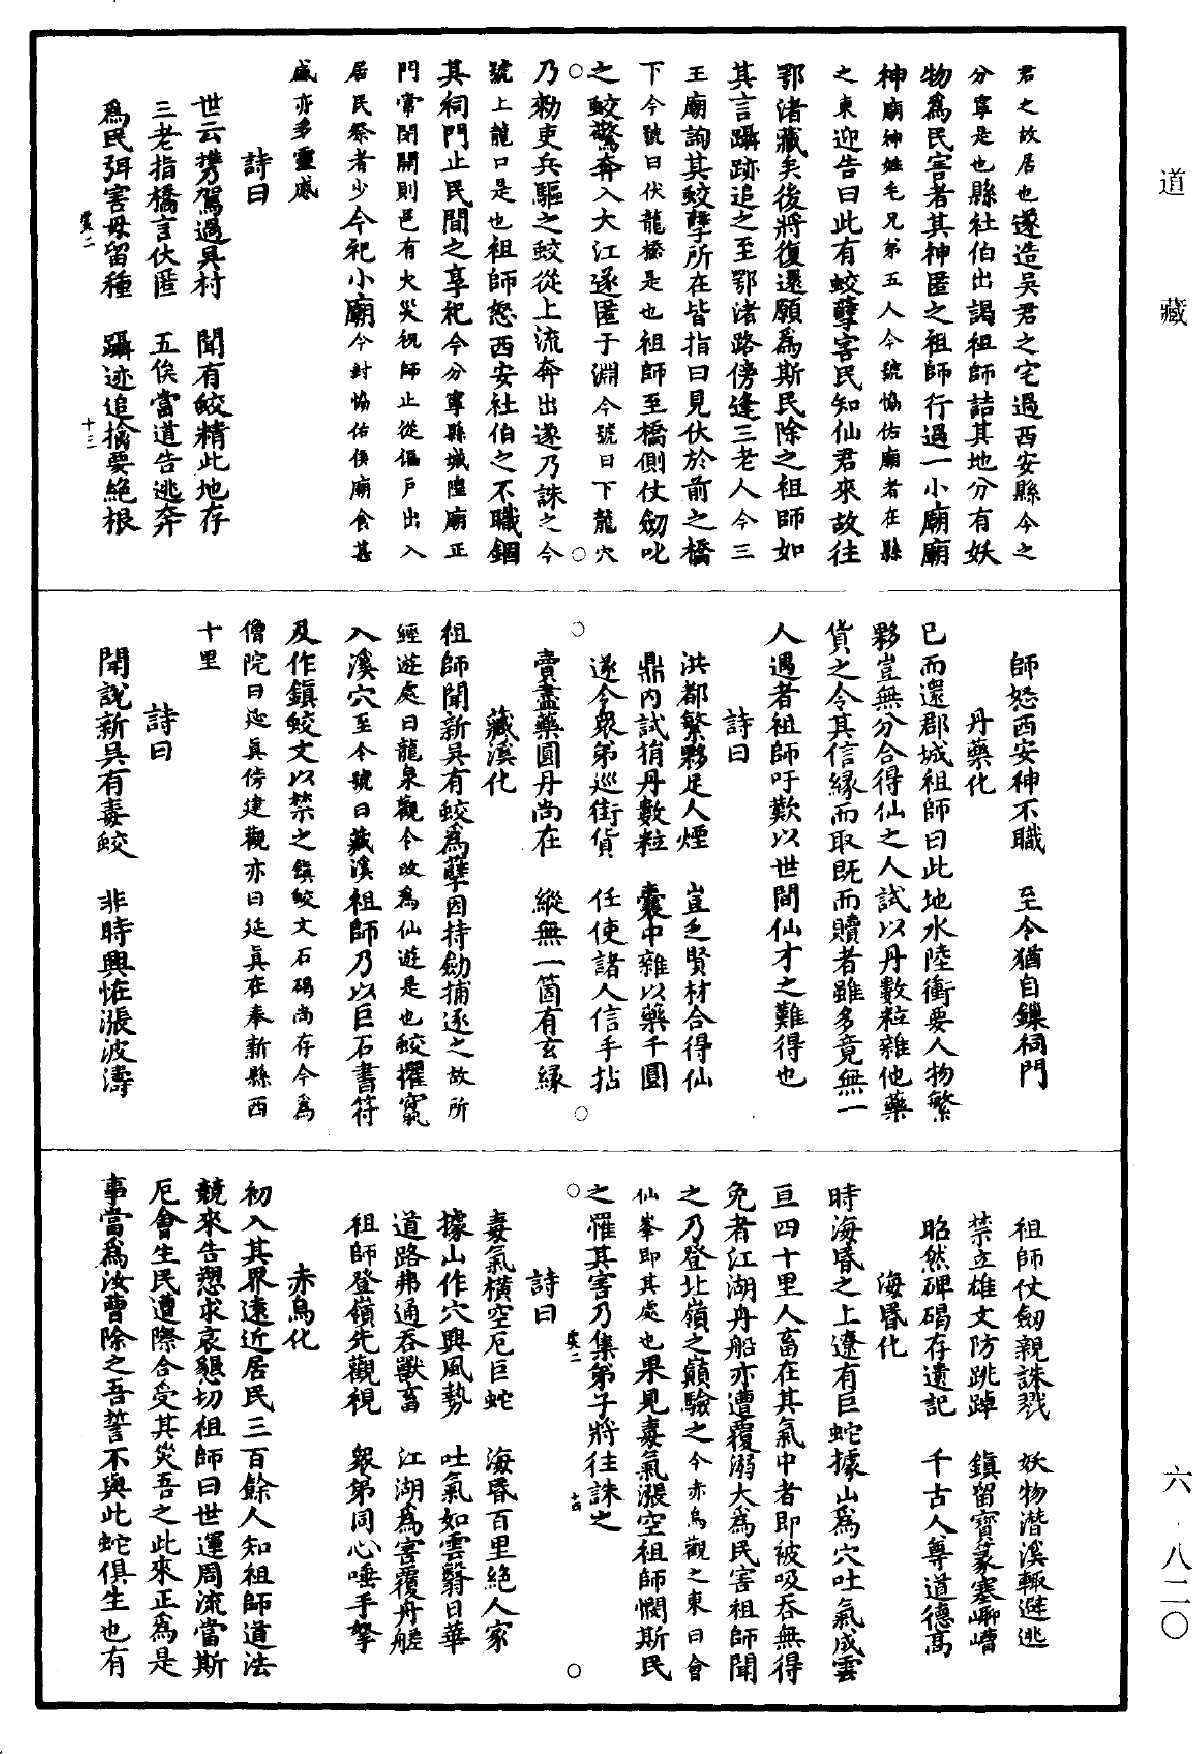 君之故居也遂造吳君之宅過西安縣今之
分寧是也縣社伯出謁祖師詰其地分有妖
物為民害者其神匿之祖師行過一小廟廟
神廟神姓毛兄弟五人今號協佑廟者在縣
之東迎告曰此有蛟孽害民知仙君來故往
鄂渚藏矣後將復還願為斯民除之祖師如
其言躡跡追之至鄂渚路傍逢三老人今三
王廟詢其蛟孽所在皆指曰見伏於前之橋
下今號曰伏龍橋是也祖師至橋側仗劒叱
之蛟驚奔入大江遂匿于淵今號曰下龍穴
乃勑吏兵驅之蛟從上流奔出遂乃誅之今
號上龍口是也祖師怒西安社伯之不職錮
其祠門止民間之享祀今分寧縣城隍廟正
門常閉開則邑有火災祝師止從偏戶出入
居民祭者少今祀小廟今封協佑侯廟食甚
盛亦多靈感
詩曰
世云携駕過吳村　聞有蛟精此地存
三老指橋言伏匿　五侯當道告逃奔
為民弭害毋留種　躡迹追擒要絕根
虞二　十三
師怒西安神不職　至今猶自鏁祠門
丹藥化
已而還郡城祖師曰此地水陸衝要人物繁
夥豈無分合得仙之人試以丹數粒雜他藥
貨之令其信緣而取既而贖者雖多竟無一
人遇者祖師吁歎以世間仙才之難得也
詩曰
洪都繁夥足人煙　豈乏賢材合得仙
鼎內試捎丹數粒　囊中雜以藥千圓
遂令衆弟巡街貨　任使諸人信手拈
賣盡藥圓丹尚在　縱無一箇有玄緣
藏溪化
祖師聞新吳有蛟為孽因持劒捕逐之故所
經遊處曰龍泉觀今改為仙遊是也蛟懼竄
入溪穴至今號曰藏溪祖師乃以巨石書符
及作鎮蛟文以禁之鎮蛟文石碣尚存今為
僧院曰延真傍建觀亦曰延真在奉新縣西
十里
詩曰
聞說新吳有毒蛟　非時興恠漲波濤
祖師仗劒親誅戮　妖物潛溪輙遁逃
禁立雄文防跳踔　鎮留寶篆塞嘲嘈
昭然碑碣存遺記　千古人尊道德高
海昏化
時海昏之上遼有巨蛇據山為穴吐氣成雲
亘四十里人畜在其氣中者即被吸吞無得
免者江湖舟船亦遭覆溺大為民害祖師聞
之乃登北嶺之巔驗之今赤烏觀之東曰會
仙峯即其處也果見毒氣漲空祖師憫斯民
之罹其害乃集弟子將往誅之
虞二　十四
詩曰
毒氣橫空厄巨蛇　海昏百里絕人家
據山作穴興風勢　吐氣如雲翳日華
道路弗通吞獸畜　江湖為害覆舟艖
祖師登嶺先觀視　衆弟同心唾手拏
赤烏化
初入其界遠近居民三百餘人知祖師道法
競來告愬求哀懇切祖師曰世運周流當斯
厄會生民遭際合受其災吾之此來正為是
事當為汝曹除之吾誓不與此蛇俱生也有
道藏
六·八二〇